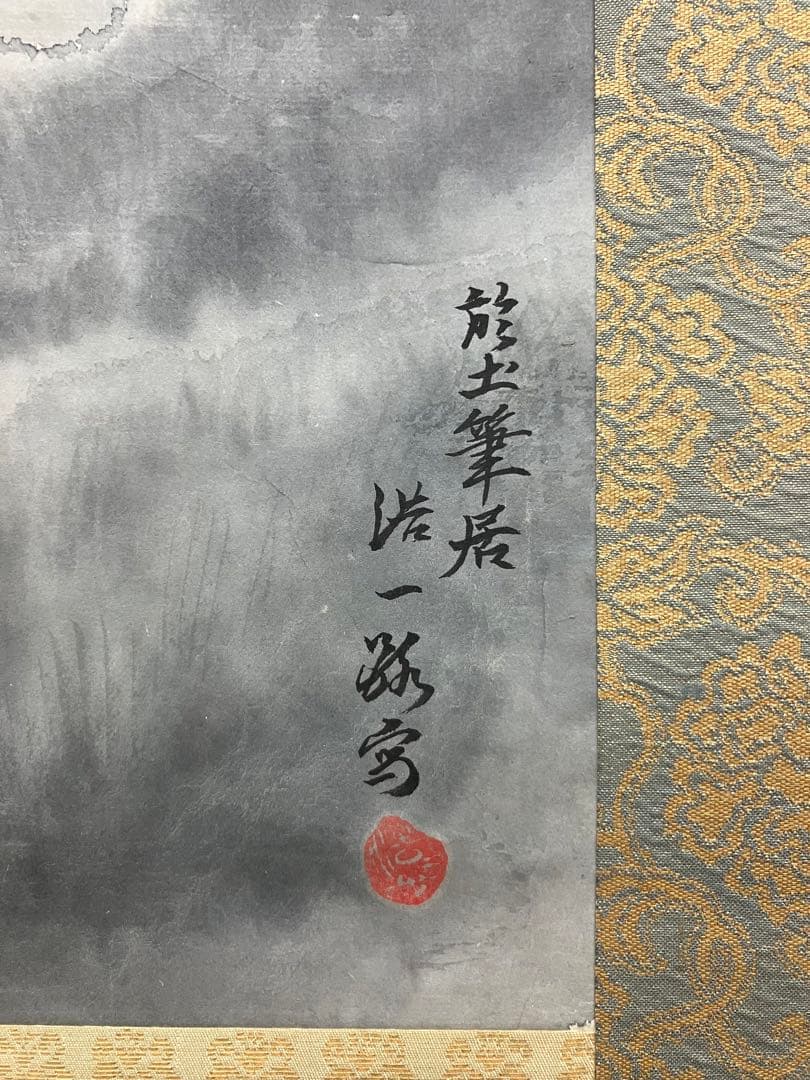 於土筆居
浩一路写